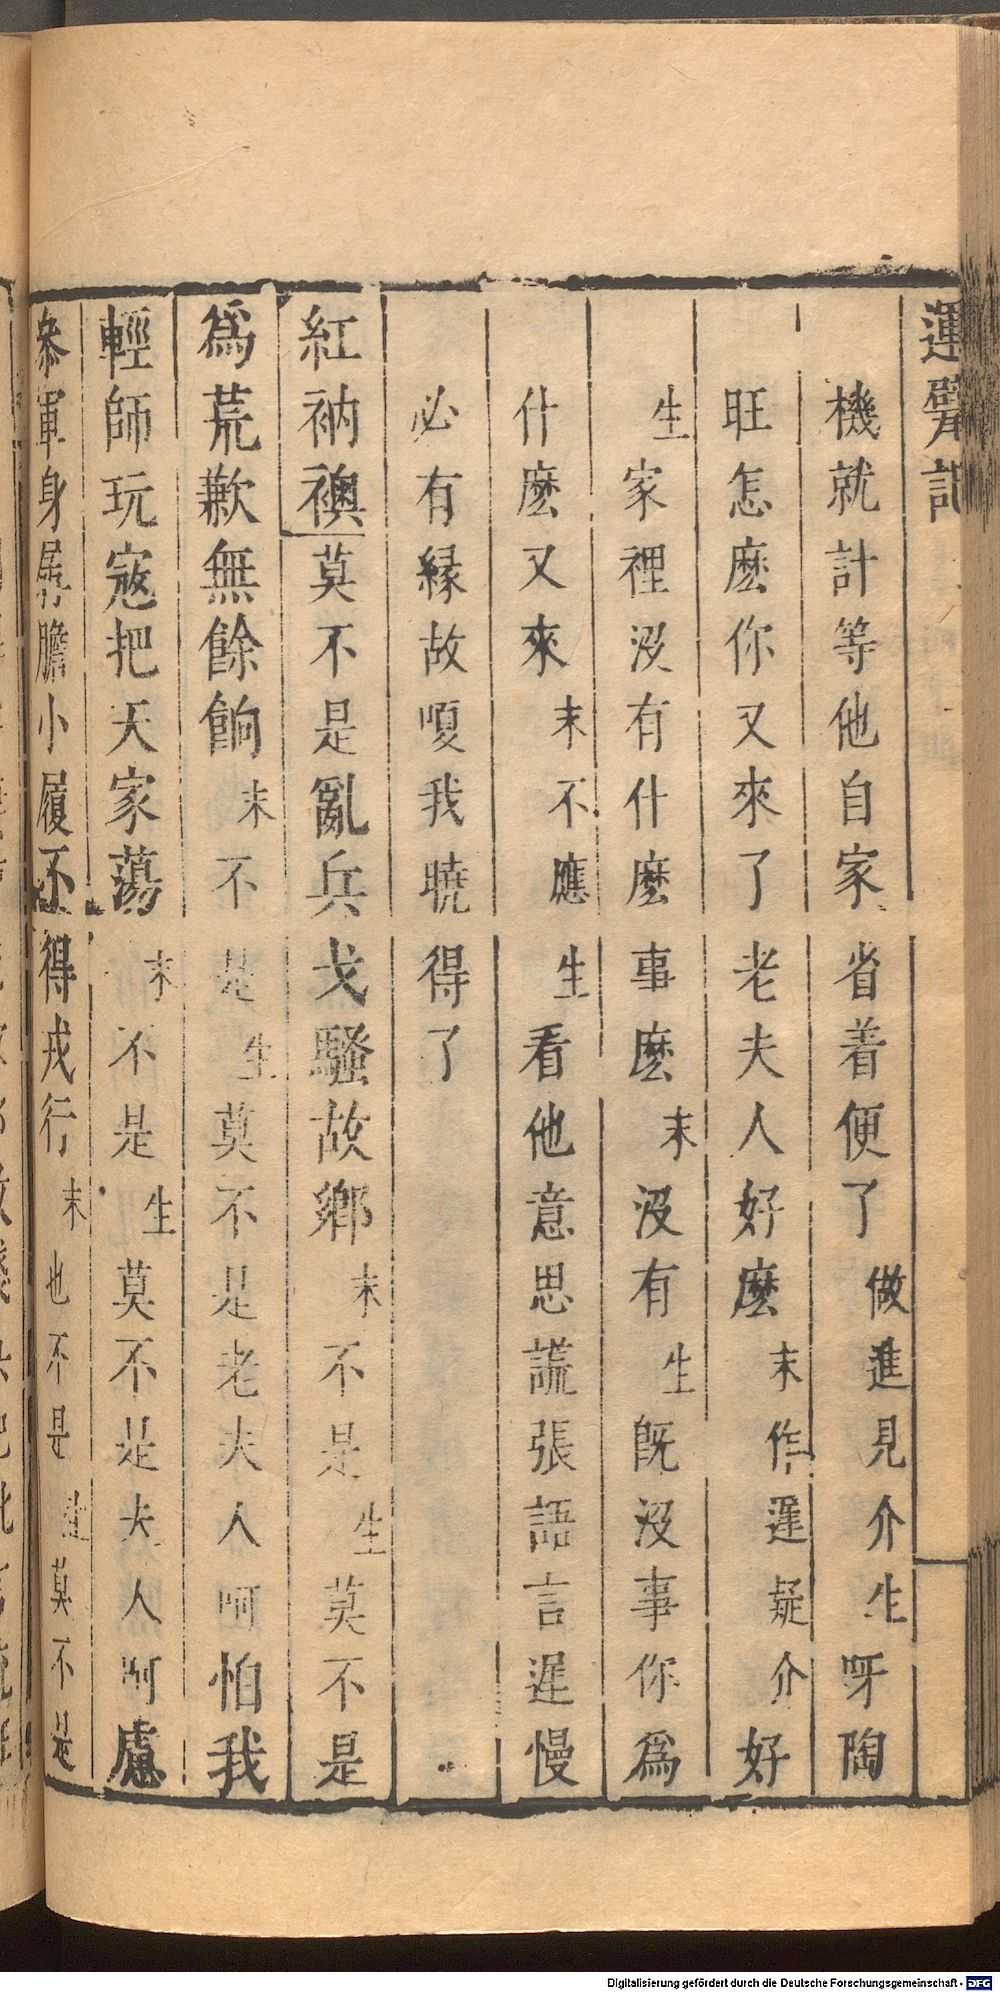 運甓記
機就計等他自家省着便了做進見介生呀陶
旺怎麽你又來了老夫人好麽末作遲疑介好
生家裡沒有什麽事麽末沒有生旣沒事你爲
什麽又來末不應生看他意思謊張語言遲慢
必有緣故嗄我曉得了
紅衲襖莫不是亂兵戈騷故鄉末不是生莫不是
爲荒歉無餘餉末不是生莫不是老夫人呵怕我
輕師玩寇把天家蕩末不是生莫不是夫人呵慮
叅軍身孱膽小履不得戎行末也不是生莫不是
Digitalisierung gefördert durch die Deutsche Forschungsgemeinschaft - DFG